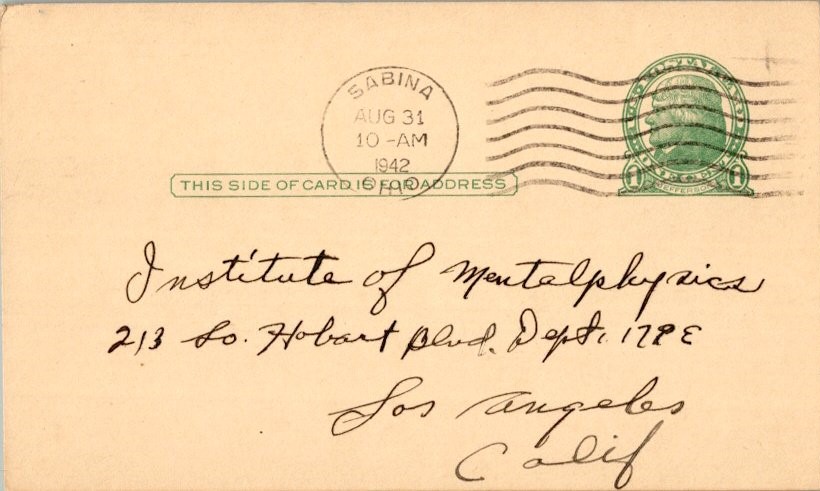 SABINA
AUG 31
10-AM
1942
OHIO
U.S. POSTAL CARD
ONE CENT
1 JEFFERSON 1
THIS SIDE OF CARD IS FOR ADDRESS
Institute of Mentalphysics
213 So. Hobart Blvd. Dept.
Los Angeles
Calif